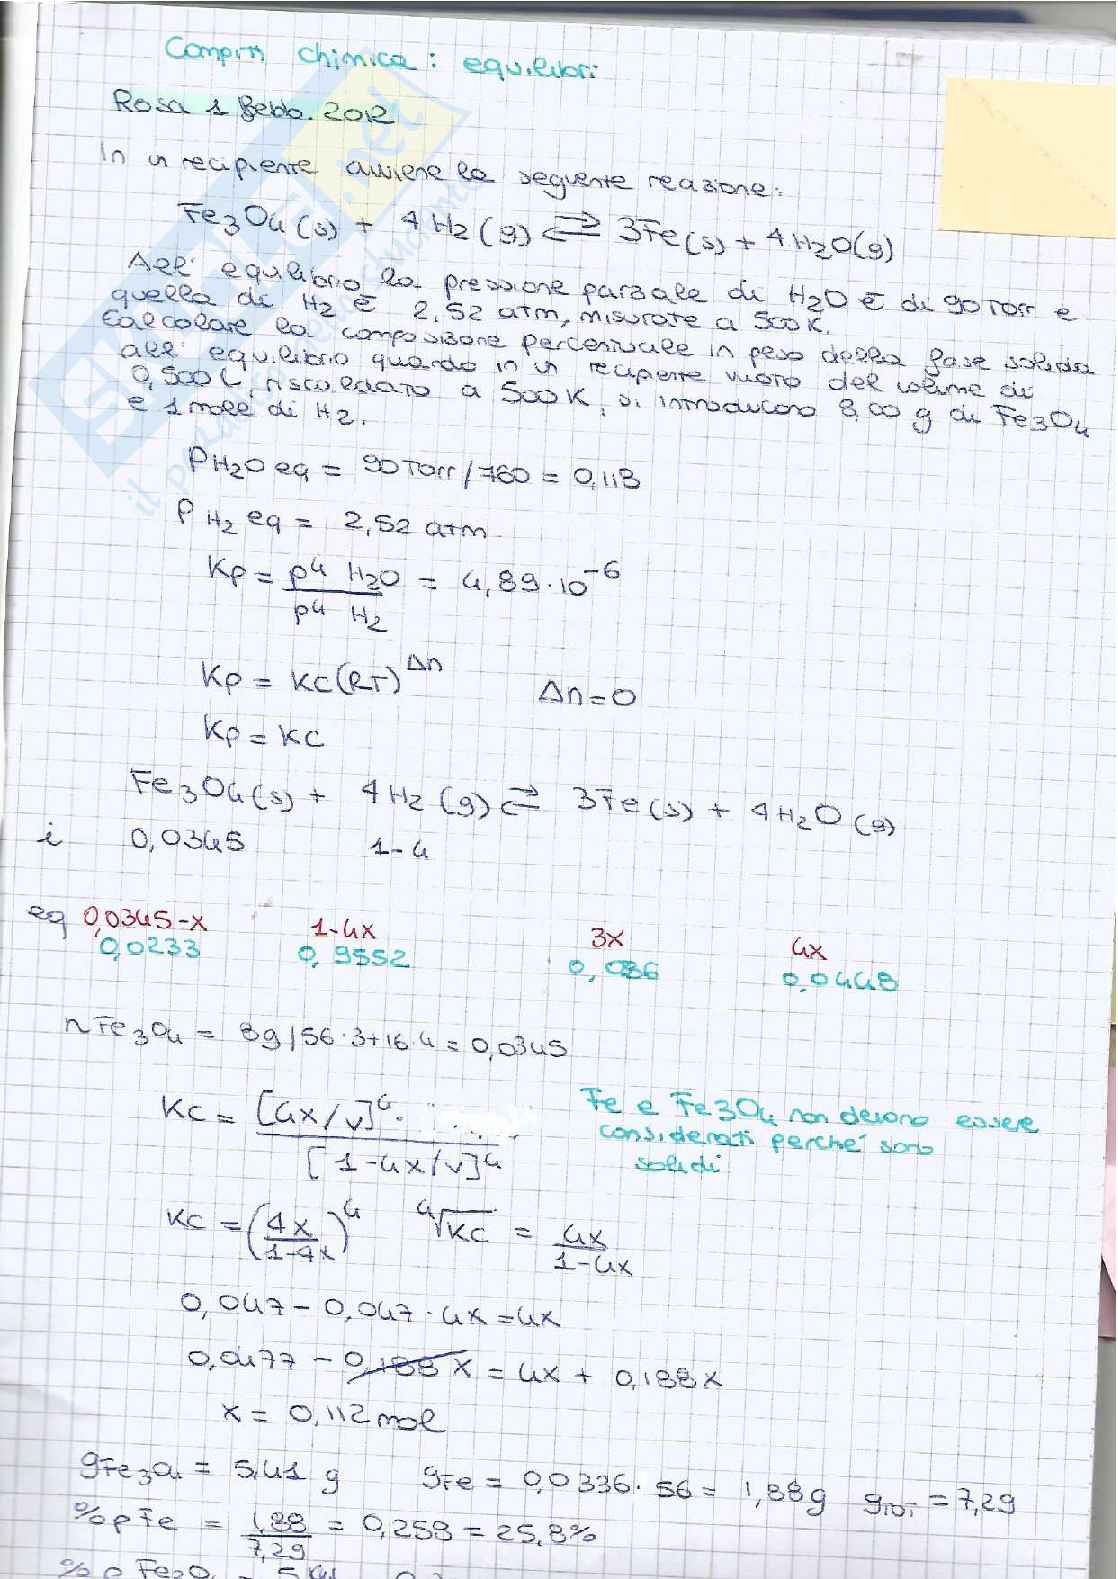 Compiti chimica: equilibri
Rosa 1 Febb. 2012
In un recipiente avviene la seguente reazione:
Fe3O4(s) + 4H2(g) ⇌ 3Fe(s) + 4H2O(g)
All' equilibrio la pressione parziale di H2O è di 90 Torr e
quella di H2 è 2,52 atm, misurate a 500K.
Calcolare la composizione percentuale in peso della fase solida
all' equilibrio quando in un recipiente vuoto del volume di
0,500 L, riscaldato a 500K, si introducono 8,00 g di Fe3O4
e 1 mole di H2.
PH2O eq = 90 Torr/760 = 0,118
PH2 eq = 2,52 atm
Kp = p4 H2O / p4 H2 = 4,89·10^-6
Kp = Kc(RT)^Δn Δn=0
Kp = Kc
Fe3O4(s) + 4H2(g) ⇌ 3Fe(s) + 4H2O(g)
i 0,0345 1-4
eq 0,0345-x 1-4x 3x 4x
0,0233 0,9552 0,0448
nFe3O4 = 8g/56·3+16·4 = 0,0345
Kc = [4x/v]^4· / [1-4x/v]^4
Fe e Fe3O4 non devono essere
considerati perché sono
solidi
Kc = (4x/1-4x)^4 4√Kc = 4x/1-4x
0,047 - 0,047·4x = 4x
0,0477 - 0,188x = 4x + 0,188x
x = 0,112 mol
gFe3O4 = 5,41 g gFe = 0,0336·56 = 1,88g gtot = 7,29
%p Fe = 1,88/7,29 = 0,258 = 25,8%